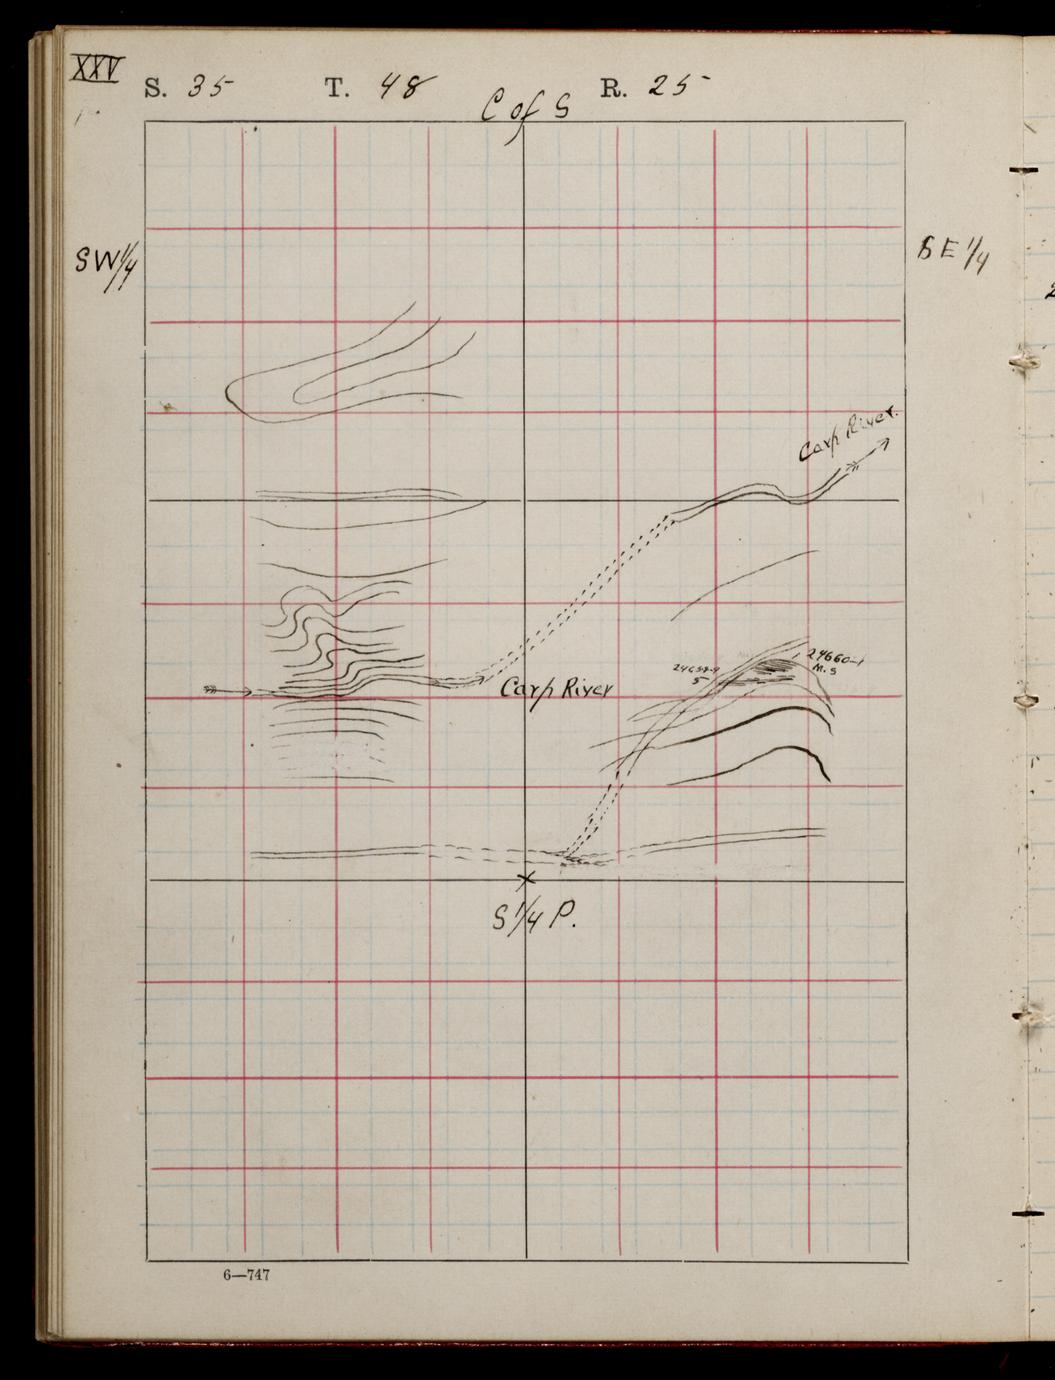 XXV
S. 35 T. 48 R. 25
C of S
SW 1/4
SE 1/4
Carp River.
24660-1
M.S
5
Carp River
S 1/4 P.
6—747